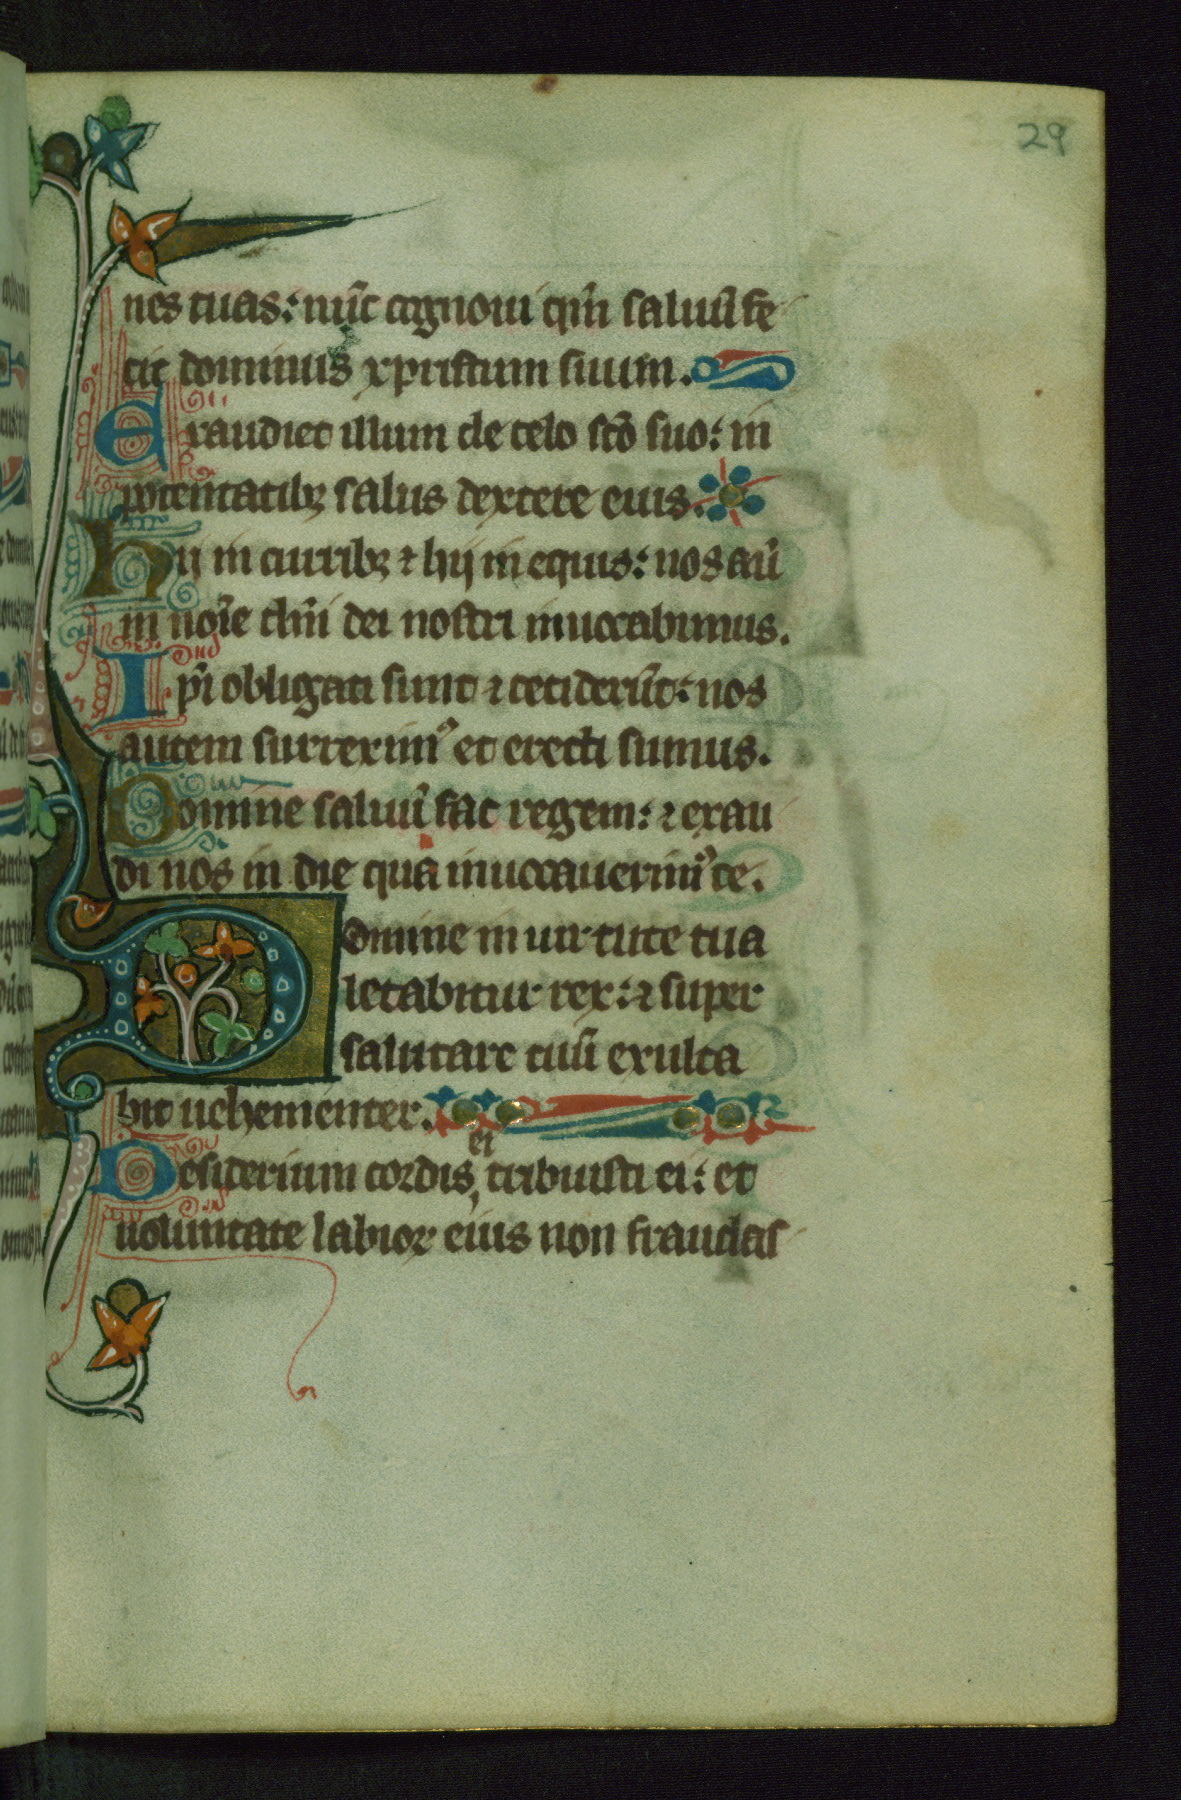 29
nes tuas: nūc cognoui qm̄ saluū fe
cit dominus xpristum suum.
Exaudiet illum de celo scō suo: in
potentatibꝫ salus dextere eius.
Hii in curribꝫ ⁊ hij in equis: nos aū
in noīe dn̄i dei nostri inuocabimus.
Ipī obligati sunt ⁊ ceciderūt: nos
autem surreximꝰ et erecti sumus.
Domine saluū fac regem: ⁊ exau
di nos in die qua inuocauerimꝰ te.
Domine in uirtute tua
letabitur rex: ⁊ super
salutare tuū exulta
bit uehementer.
ei
Desiderium cordis, tribuisti ei: et
uoluntate labioꝝ eius non fraudas